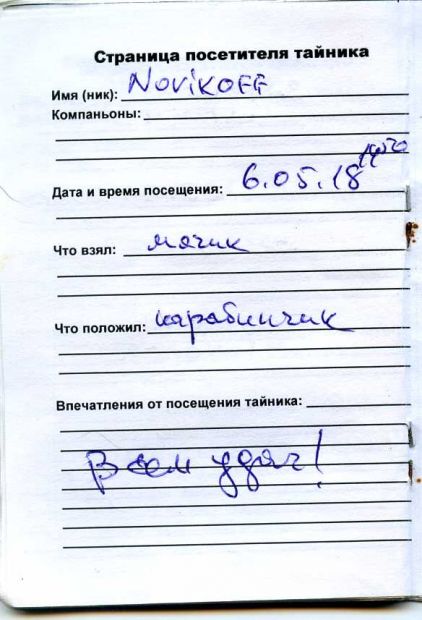 Страница посетителя тайника
Имя (ник): Novikoff
Компаньоны:
Дата и время посещения: 6.05.18
Что взял: мячик
Что положил: карабинчик
Впечатления от посещения тайника:
Всем удач!